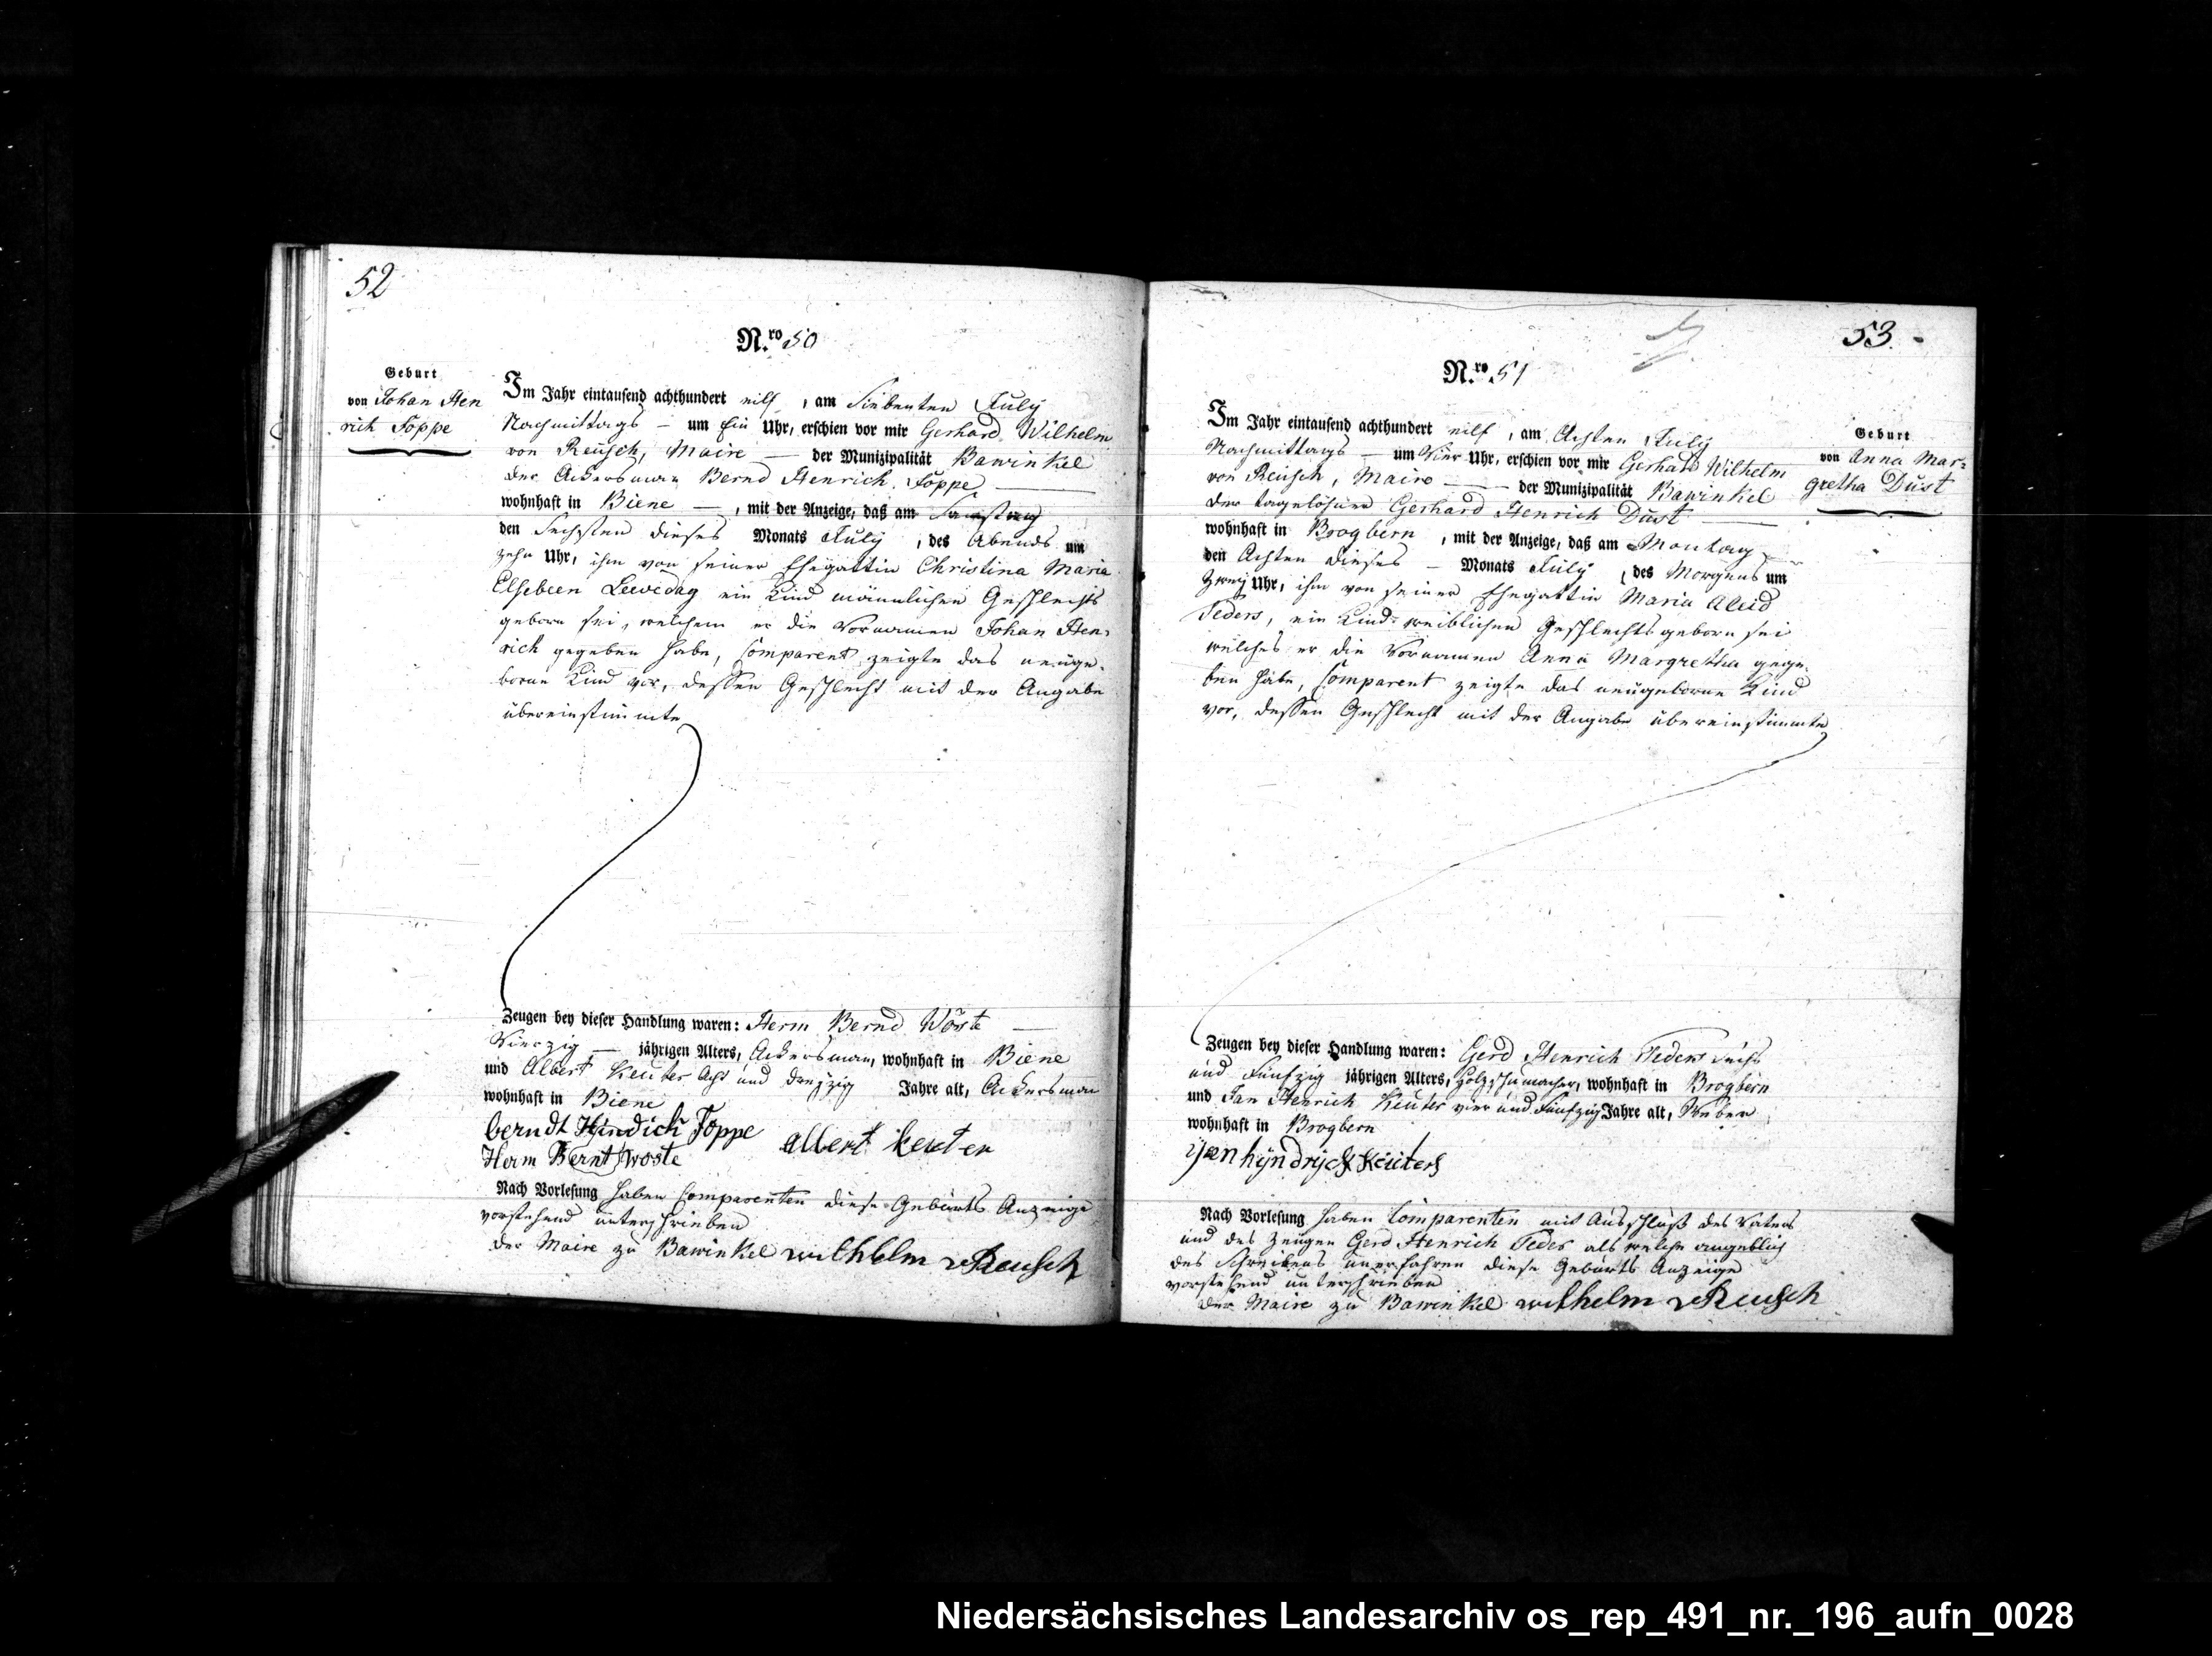 52
N.ro 50
Geburt
von Johan Hen
rich Foppe
Im Jahr eintausend achthundert eilf, am Siebenten July
Nachmittags – um Ein Uhr, erschien vor mir Gerhard Wilhelm
von Reusch, Maire — der Munizipalität Bawinkel
der Ackersman Bernd Henrich Foppe —
wohnhaft in Biene —, mit der Anzeige, daß am Samstag
den Sechsten dieses Monats July, des Abends um
zehn Uhr, ihm von seiner Ehegattin Christina Maria
Elsebeen Leevedag ein Kind männlichen Geschlechts
geborn sei, welchem er die Vornamen Johan Hen-
rich gegeben habe, Comparent zeigte das neuge-
borne Kind vor, dessen Geschlecht mit der Angabe
übereinstimmte
Zeugen bey dieser Handlung waren: Herm Bernd Wöste —
Vierzig — jährigen Alters, Ackersman, wohnhaft in Biene
und Albert Keuter Acht und dreyzig Jahre alt, Ackersman
wohnhaft in Biene
berndt Hindich Foppe albert keuter
Herm Bernt woste
Nach Vorlesung haben Comparenten diese Geburts Anzeige
vorstehend unterschrieben
der Maire zu Bawinkel wilhelm v Reusch
53.
N.ro 51
Geburt
von Anna Mar-
gretha Dust
Im Jahr eintausend achthundert eilf, am Achten July
Nachmittags – um Vier Uhr, erschien vor mir Gerhard Wilhelm
von Reusch, Maire — der Munizipalität Bawinkel
der tagelöhner Gerhard Henrich Dust —
wohnhaft in Brogbern, mit der Anzeige, daß am Montag
den Achten dieses – Monats July, des Morgens um
zwey Uhr, ihm von seiner Ehegattin Maria Aleid
Teders, ein Kind weiblichen Geschlechts geborn sei
welches er die Vornamen Anna Margretha gege-
ben habe, Comparent zeigte das neugeborne Kind
vor, dessen Geschlecht mit der Angabe übereinstimmte
Zeugen bey dieser Handlung waren: Gerd Henrich Teders Sechs
und Fünfzig jährigen Alters, Holzschumacher, wohnhaft in Brogbern
und Jan Henrich Keuter vier und Fünfzig Jahre alt, Weber
wohnhaft in Brogbern
yan hyndryck Keuters
Nach Vorlesung haben Comparenten mit Ausschluß des Vaters
und des Zeugen Gerd Henrich Teders als welche angeblich
des Schreibens unerfahren diese Geburts Anzeige
vorstehend unterschrieben
der Maire zu Bawinkel wilhelm v Reusch
Niedersächsisches Landesarchiv os_rep_491_nr._196_aufn_0028